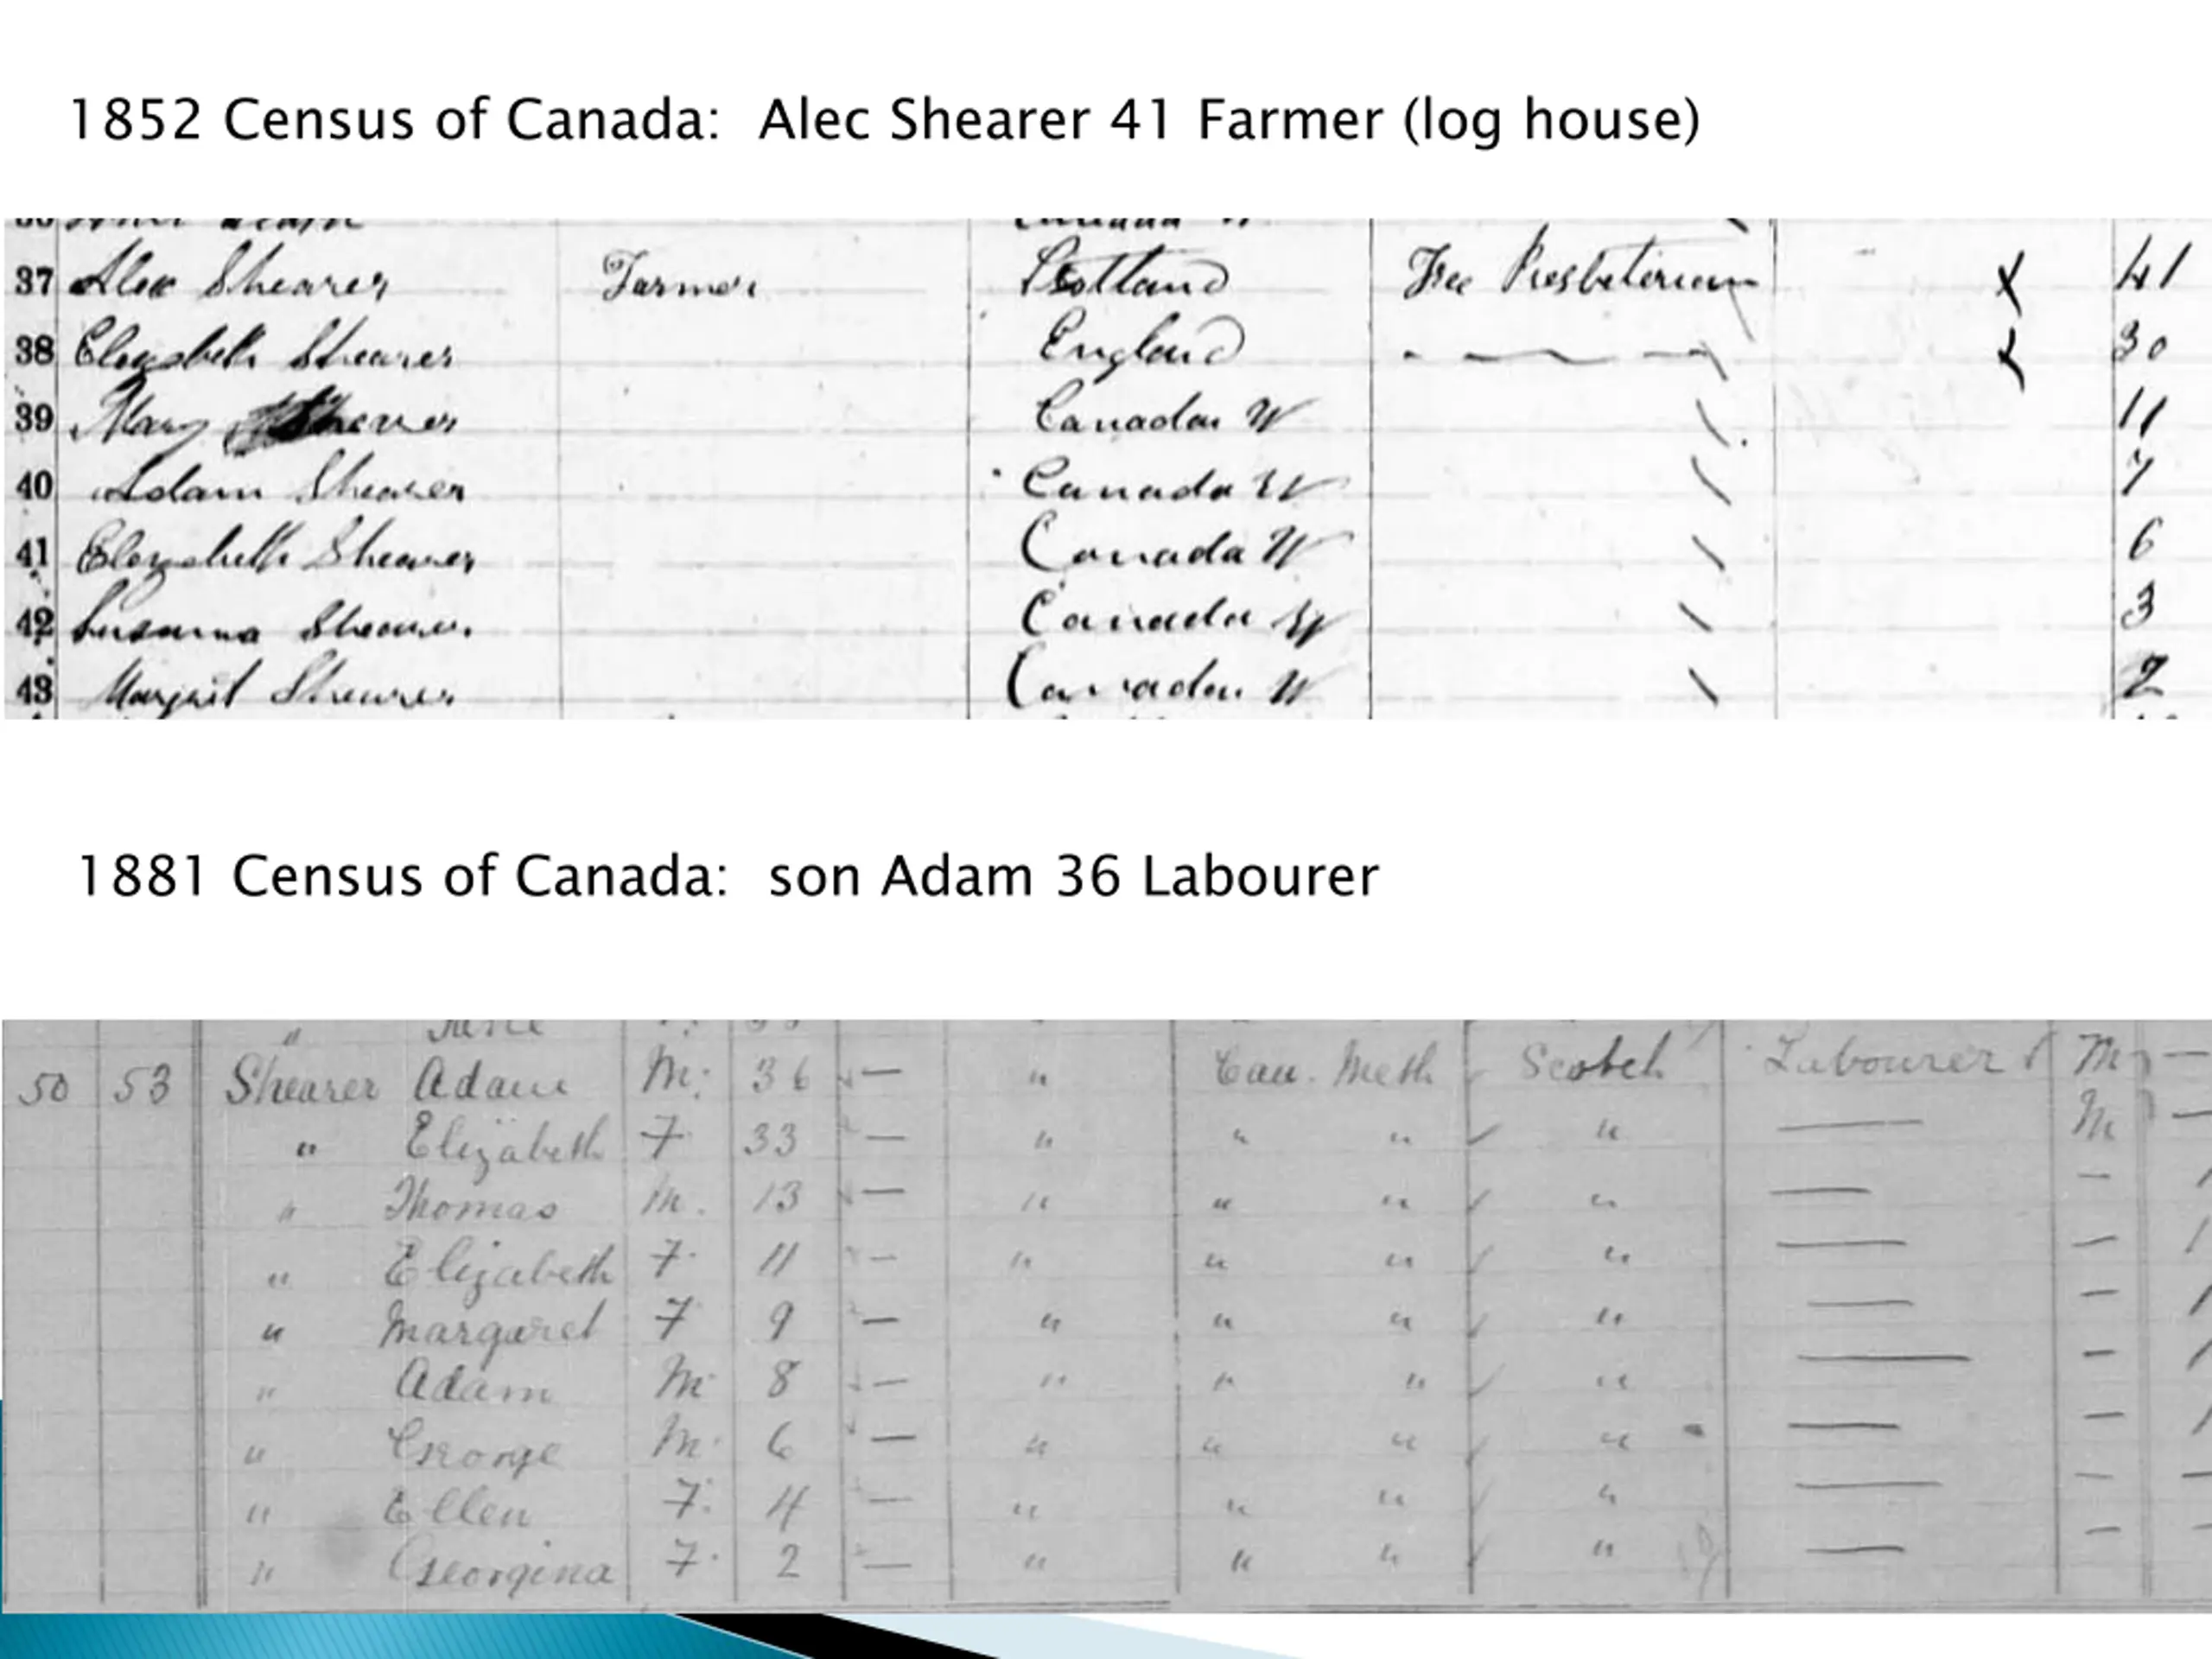 1852 Census of Canada: Alec Shearer 41 Farmer (log house)
37 Alex Shearer Farmer Scotland Free Presbeterian X 41
38 Elezabeth Shearer England X 30
39 Mary Shearer Canada W 11
40 Adam Shearer Canada W 7
41 Elezabeth Shearer Canada W 6
42 Susanna Shearer Canada W 3
43 Margrit Shearer Canada W 2
1881 Census of Canada: son Adam 36 Labourer
50 53 Shearer Adam M. 36 — " Can. Meth Scotch Labourer M —
" Elizabeth F 33 — " " " " — M —
" Thomas M. 13 — " " " " — —
" Elizabeth F. 11 — " " " " — —
" Margaret F 9 — " " " " — —
" Adam M 8 — " " " " — —
" George M. 6 — " " " " — —
" Ellen F. 4 — " " " " — —
" Georgina F. 2 — " " " " — —